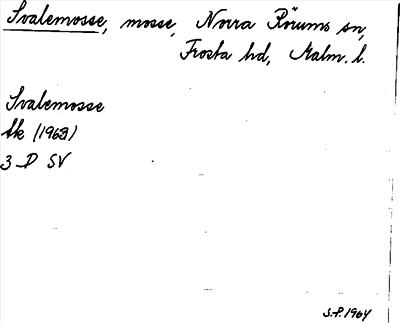 Svalemosse, mosse, Norra Rörums sn,
Frosta hd, Malm. l.
Svalemosse
Ek (1963)
3 D SV
S.P. 1964